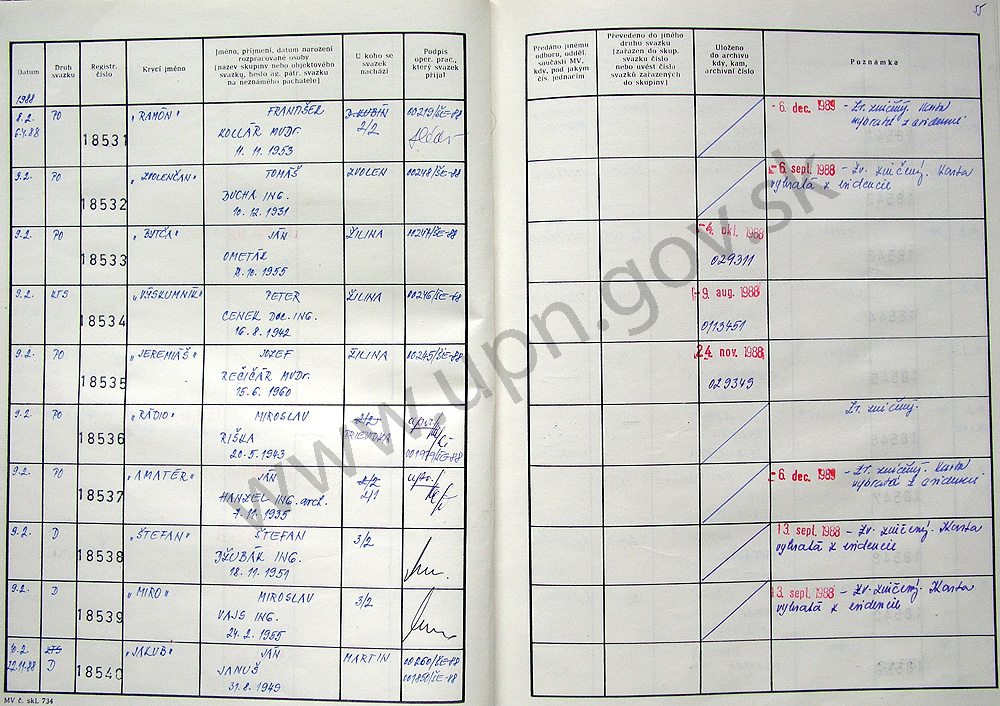 55
Datum
Druh svazku
Registr. číslo
Krycí jméno
Jméno, příjmení, datum narození
rozpracované osoby
(název skupiny nebo objektového
svazku, heslo ag. pátr. svazku
na neznámého pachatele)
U koho se
svazek
nachází
Podpis
oper. prac.,
který svazek
přijal
Předáno jinému
odboru, odděl.
součásti MV,
kdy, pod jakým
čís. jednacím
Převedeno do jiného
druhu svazku
(zařazen do skup.
svazku číslo
nebo uvést čísla
svazků zařazených
do skupiny)
Uloženo
do archivu
kdy, kam,
archivní číslo
Poznámka
1988
8.2. PO 18531 „RAMÓN" FRANTIŠEK 00219/ŠE-88
KOLLÁR MVDr. 2/2
11. 11. 1953
-6. dec. 1989 - Zv. zničený. Karta
vybratá z evidencie
9.2. PO 18532 „ZVOLENČAN" TOMÁŠ ZVOLEN 00248/ŠE-88
DUCHA ING.
10. 12. 1931
-6. sept. 1988 - Zv. zničený. Karta
vybratá z evidencie
9.2. PO 18533 „BYTČA" JÁN ŽILINA 00247/ŠE-88
OMETÁK
8. 10. 1955
-4. okt. 1988
029311
9.2. KTS 18534 „VÝSKUMNÍK" PETER ŽILINA 00246/ŠE-88
CENEK Doc. ING.
16. 8. 1942
-9. aug. 1988
0113451
9.2. PO 18535 „JEREMIÁŠ" JOZEF ŽILINA 00245/ŠE-88
REČIČÁR MVDr.
15. 6. 1960
24. nov. 1988
029349
9.2. PO 18536 „RÁDIO" MIROSLAV 2/2
RIŠKA PRIEVIDZA
20. 5. 1943
Zv. zničený.
9.2. PO 18537 „AMATÉR" JÁN 2/2
HANZEL ING. arch. 2/1
7. 11. 1935
-6. dec. 1989 - Zv. zničený. Karta
vybratá z evidencie
9.2. D 18538 „ŠTEFAN" ŠTEFAN 3/2
DŽUBÁK ING.
18. 11. 1951
13. sept. 1988 - Zv. zničený. Karta
vybratá z evidencie
9.2. D 18539 „MIRO" MIROSLAV 3/2
VAJS ING.
24. 2. 1955
13. sept. 1988 - Zv. zničený. Karta
vybratá z evidencie
10.2. KTS 18540 „JAKUB" JÁN MARTIN 00260/ŠE-88
22.11.88 D JANUŠ 001850/ŠE-88
31. 8. 1949
MV č. skl. 734
www.upn.gov.sk